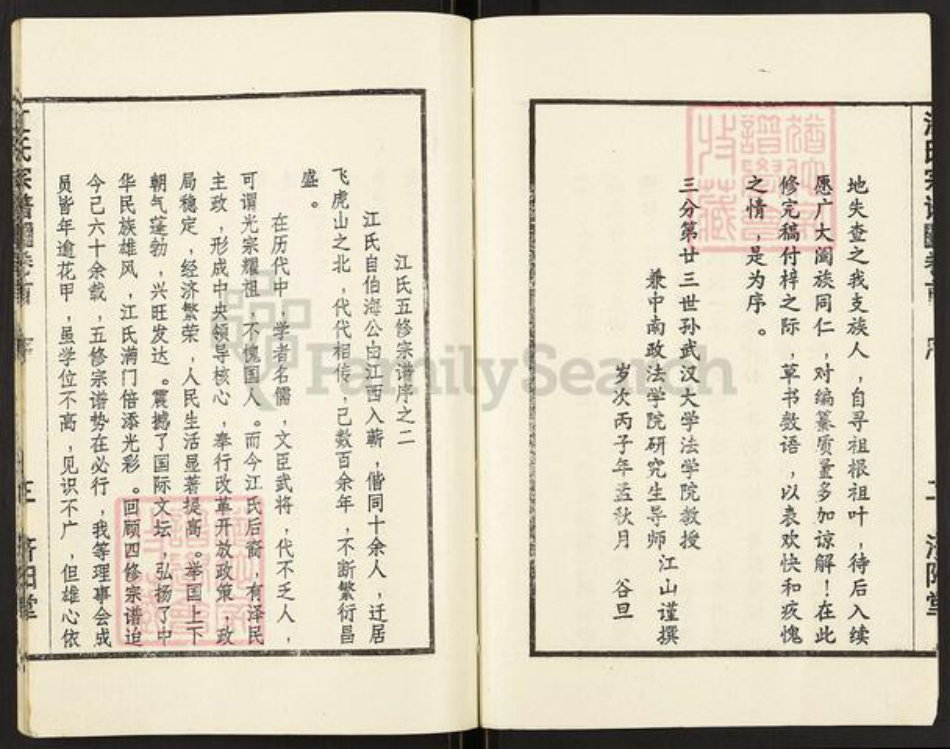 地失查之我支族人，自寻祖根祖叶，待后入续
愿广大阖族同仁，对编纂质量多加谅解！在此
修完稿付梓之际，草书数语，以表欢快和疚愧
之情，是为序。
三分第廿三世孙武汉大学法学院教授
兼中南政法学院研究生导师江山谨撰
岁次丙子年孟秋月 谷旦
江氏五修宗谱序之二
江氏自伯海公由江西入蕲，偕同十余人，迁居
飞虎山之北，代代相传，已数百余年，不断繁衍昌
盛。
在历代中，学者名儒，文臣武将，代不乏人，
可谓光宗耀祖，不愧国人。而今江氏后裔，有泽民
主政，形成中央领导核心，奉行改革开放政策，政
局稳定，经济繁荣，人民生活显著提高。举国上下
朝气蓬勃，兴旺发达。震撼了国际文坛，弘扬了中
华民族雄风，江氏满门倍添光彩。回顾四修宗谱迨
今己六十余载，五修宗谱势在必行，我等理事会成
员皆年逾花甲，虽学位不高，见识不广，但雄心依
江氏宗谱 卷首 序 三 济阳堂
FamilySearch